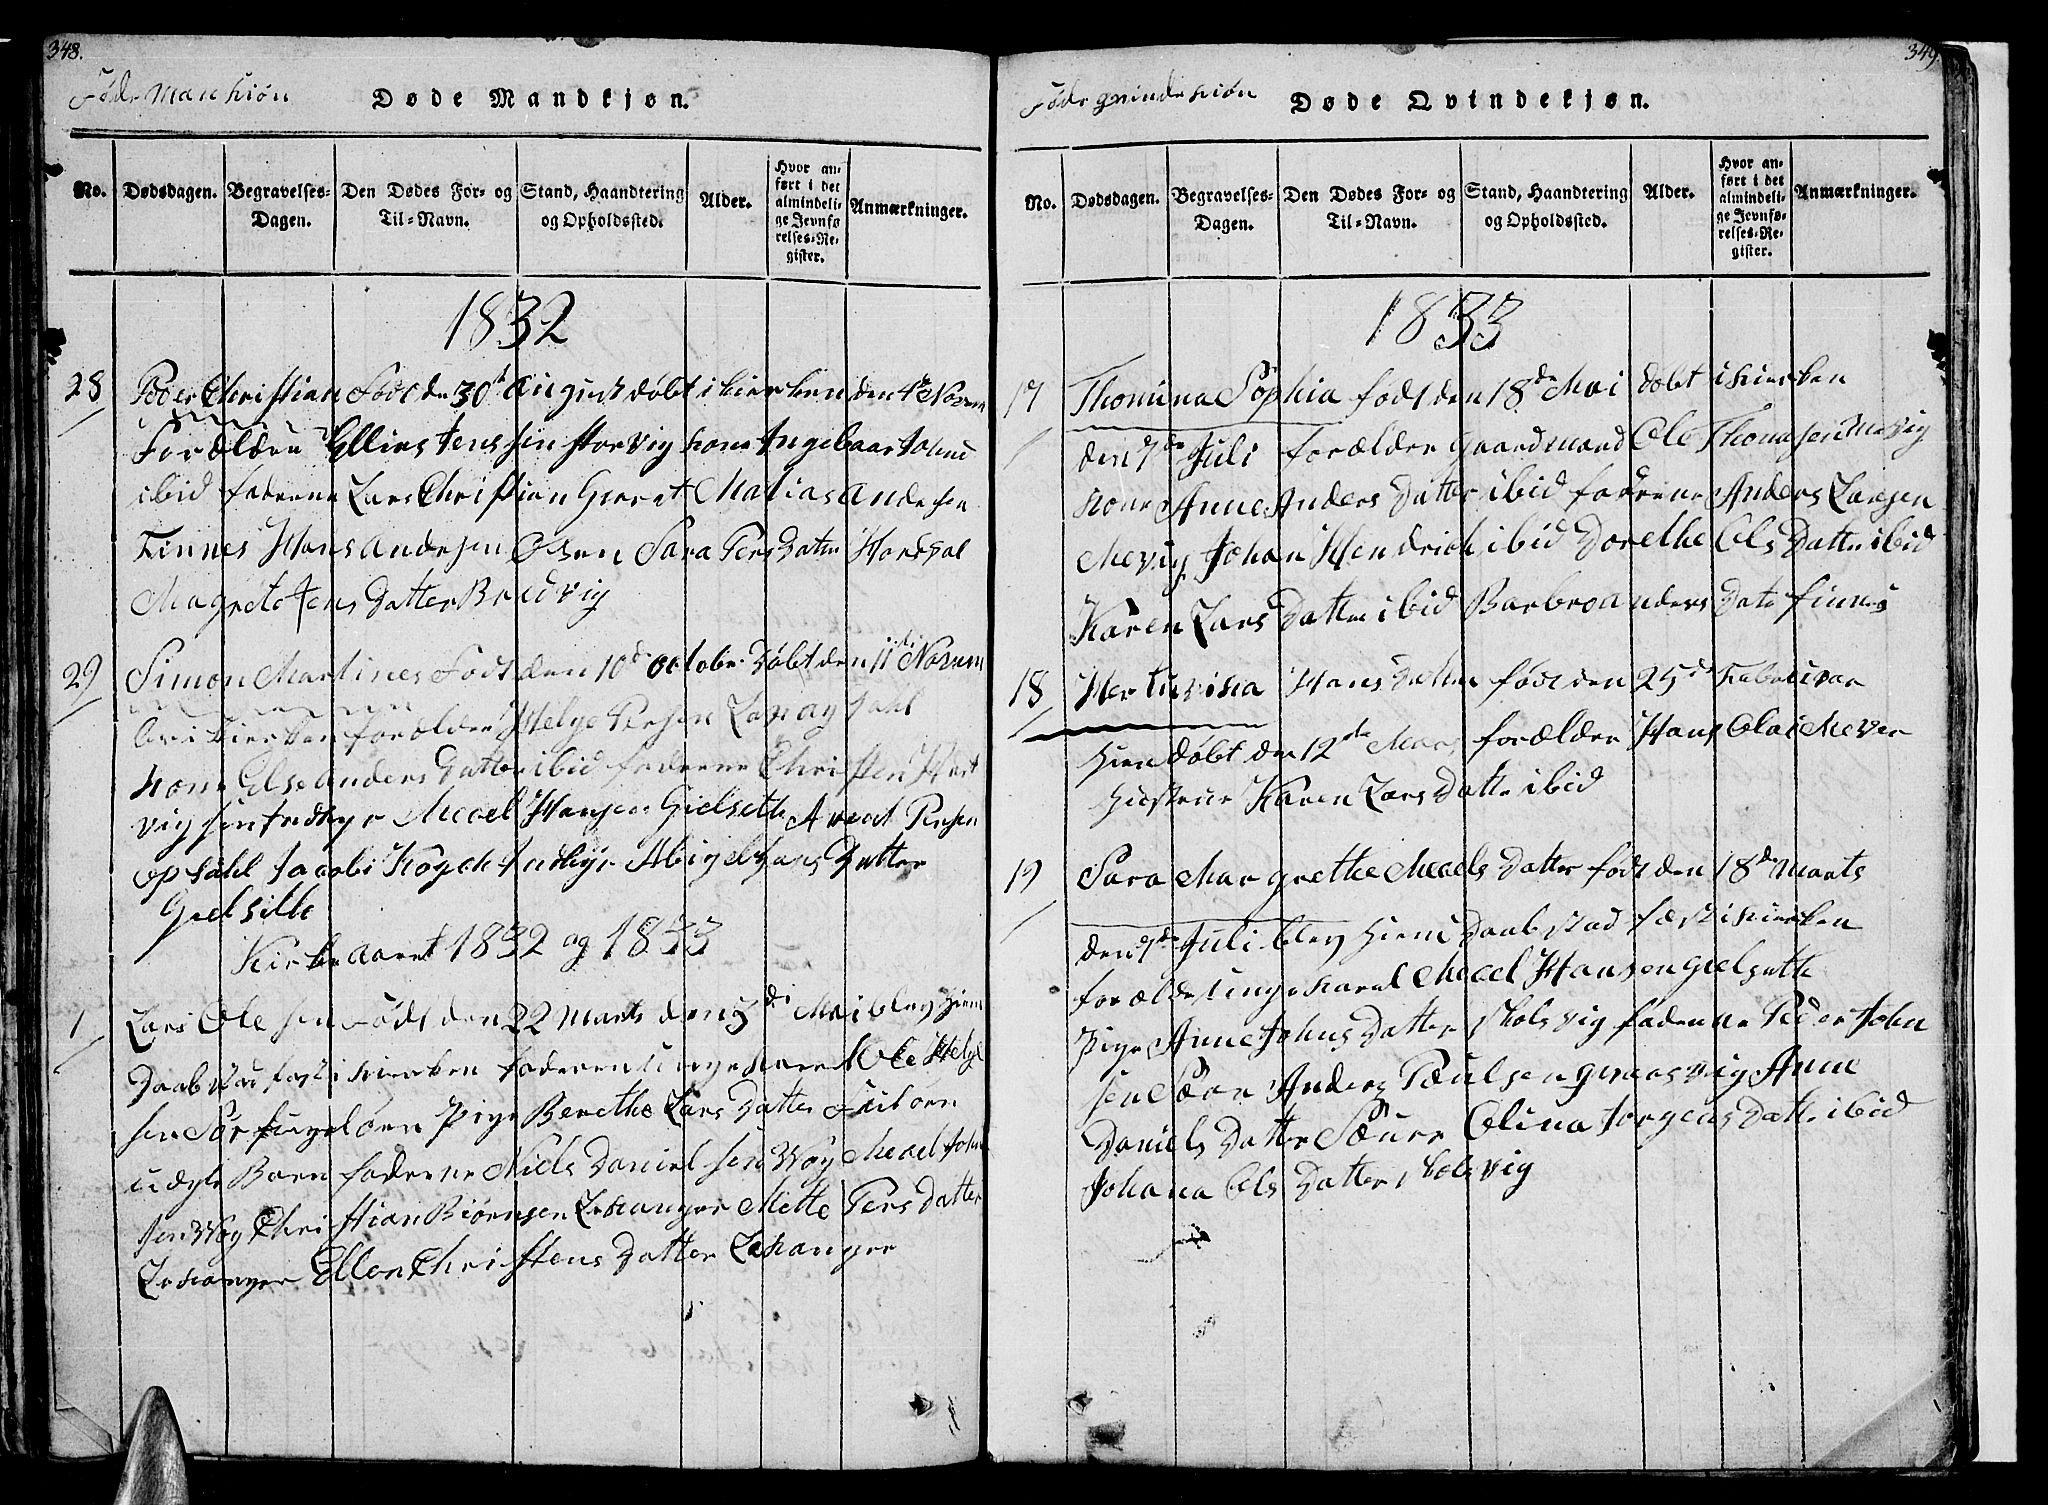 348.
Føde Mankiøn
Døde Mandkjøn.
No.
Dødsdagen.
Begravelses-
Dagen.
Den Dødes For- og
Til-Navn.
Stand, Haandtering
og Opholdssted.
Alder.
Hvor an-
ført i det
almindeli-
ge Jevnfø-
relses-Re-
gister.
Anmærkninger.
1832
28 Peder Christian Födt den 30t August döbt i kierken den 4de Novem
Forældre Ellias Jenssen Storvig kone Ingebaar Johns
ibid fadderne Lars Christian Matias Andersen
Finnes Hans Andersen Sara Pers Datter
Magrete Jens Datter Bredvig
29 Simon Martines Födt den 10de October Döbt den 11te Novem
ber i kierken forældre Helge Persen
kone Else Anders Datter ibid fadderne Christen Hart
vigsen Indhyr Micael Hansen Gielsette Arent Persen
opsahl Jacob Indhyr Abigel Datter
Gielsette
Kirkeaaret 1832 og 1833
1 Lars Olesen Födt den 22 Marts den 5de Mai blev Hiem
Daab stadfæst i kierken faderen unge karl Ole Helge
sen Pige Berethe Lars Datter
uægte Barn fadderne Niels Danielsen Wog Micael John
sen Wog Christian Biörnsen Lekanger Mette Pers Datter
Lekanger Ellen Christens Datter Lekanger
349.
Føde qvindekiøn
Døde Qvindekjøn.
No.
Dødsdagen.
Begravelses-
Dagen.
Den Dødes For- og
Til-Navn.
Stand, Haandtering
og Opholdssted.
Alder.
Hvor an-
ført i det
almindeli-
ge Jevnfø-
relses-Re-
gister.
Anmærkninger.
1833
17 Thomina Sophia födt den 18de Mai döbt i kierken
den 7de Juli forældre gaardmand Ole Thomasen Mevig
kone Anne Anders Datter ibid fadderne Anders Larsen
Mevig Johan Hendrich ibid Dorethe Ols Datter ibid
Karen Lars Datter ibid Barbro Anders Datter finnes
18 Hans Datter födt den 25de Februar
Hiemdöbt den 12te Mars forældre Hans Olai Mever
Hustrue Karen Lars Datter ibid
19 Sara Margrethe Micels Datter födt den 18de Marts
den 7de Juli blev Hiem Daab stadfæst i kierken
forældre unge karl Micel Hansen gielsette
Pige Anne Johns Datter skolsvig fadderne Peder John
sen Anders Paulsen Anne
Daniels Datter Olina Jorgens Datter ibid
Johana Ols Datter skolsvig